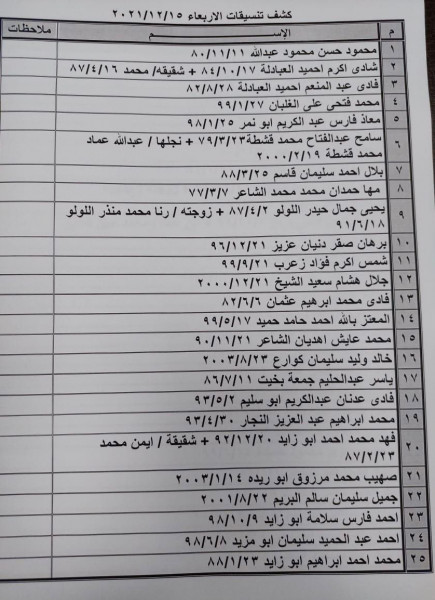 كشف تنسيقات الاربعاء ٢٠٢١/١٢/١٥
م الإســـم ملاحظات
١ محمود حسن محمود عبدالله ٨٠/١١/١١
٢ شادى اكرم احميد العبادلة ٨٤/١٠/١٧ + شقيقه/ محمد ٨٧/٤/١٦
٣ فادى عبد المنعم احميد العبادلة ٨٢/٨/٢٨
٤ محمد فتحى على الغلبان ٩٩/١/٢٧
٥ معاذ فارس عبد الكريم ابو نمر ٩٨/١/٢٥
٦ سامح عبدالفتاح محمد قشطة ٧٩/٣/٢٣ + نجلها / عبدالله عماد
محمد قشطة ٢٠٠٠/٢/١٩
٧ بلال احمد سليمان قاسم ٨٨/٣/٢٥
٨ مها حمدان محمد محمد الشاعر ٧٧/٣/٧
٩ يحيى جمال حيدر اللولو ٨٧/٤/٢ + زوجته / رنا محمد منذر اللولو
٩١/٦/١٨
١٠ برهان صقر دنيان عزيز ٩٦/١٢/٢١
١١ شمس اكرم فؤاد زعرب ٩٩/٩/٢١
١٢ جلال هشام سعيد الشيخ ٢٠٠٠/١٢/٢١
١٣ فادى محمد ابرهيم عثمان ٨٢/٦/٦
١٤ المعتز بالله احمد حامد حميد ٩٩/٥/١٧
١٥ محمد عايش اهديان الشاعر ٩٠/١١/٢١
١٦ خالد وليد سليمان كوارع ٢٠٠٣/٨/٢٣
١٧ ياسر عبدالحليم جمعة بخيت ٨٦/٧/١١
١٨ فادى عدنان عبدالكريم ابو سليم ٩٣/٥/٢
١٩ محمد ابراهيم عبد العزيز النجار ٩٣/٤/٣٠
٢٠ فهد محمد احمد ابو زايد ٩٢/١٢/٢٠ + شقيقة / ايمن محمد
٨٧/٢/٢٣
٢١ صهيب محمد مرزوق ابو ريده ٢٠٠٣/١/١٤
٢٢ جميل سليمان سالم البريم ٢٠٠١/٨/٢٢
٢٣ احمد فارس سلامة ابو زايد ٩٨/١٠/٩
٢٤ احمد عبد الحميد سليمان ابو مزيد ٩٨/٦/٨
٢٥ محمد احمد ابراهيم ابو زايد ٨٨/١/٢٣